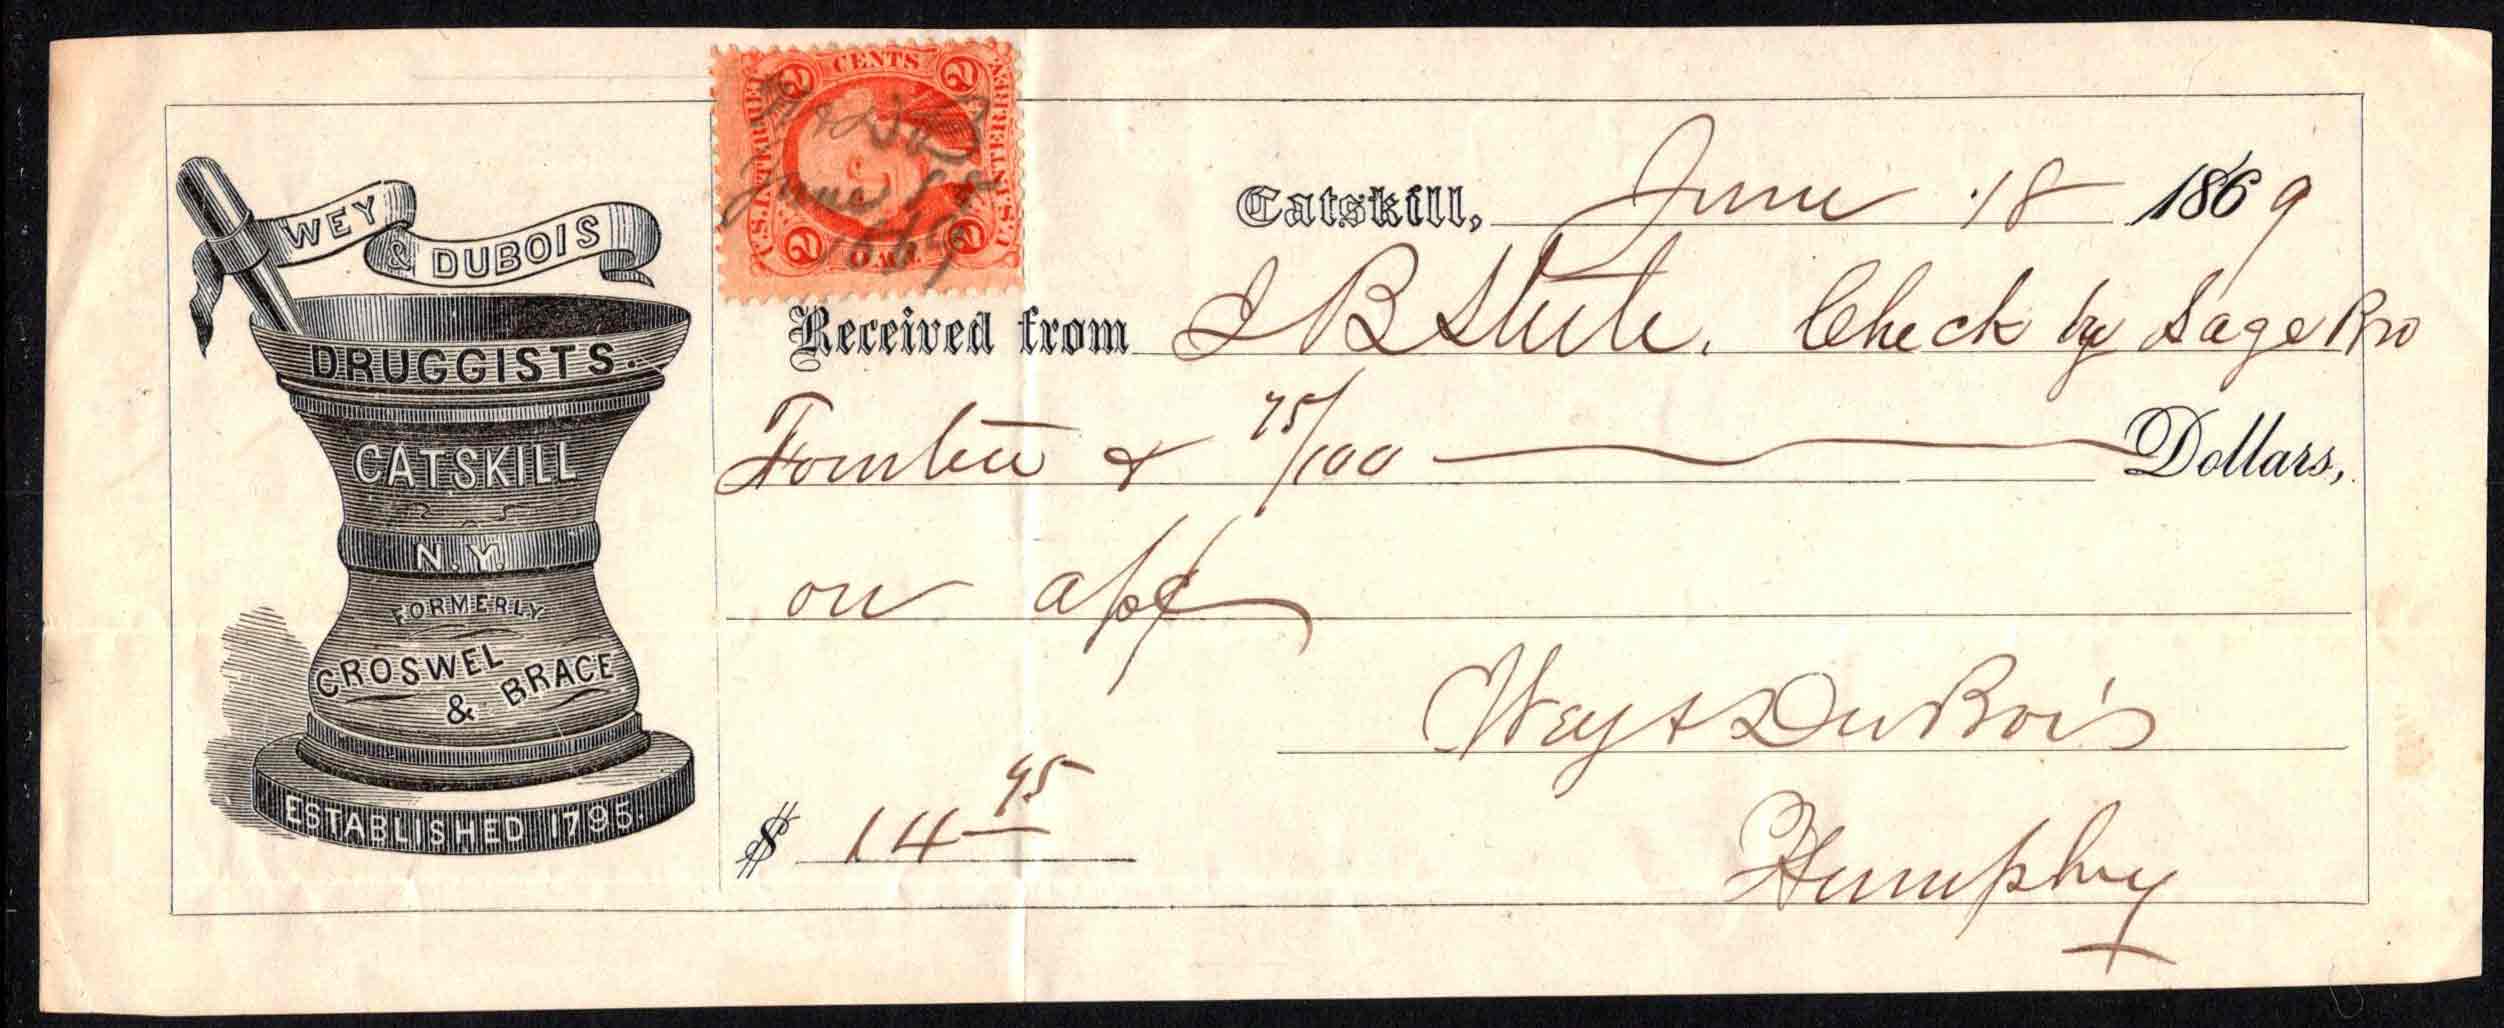 WEY & DUBOIS
DRUGGISTS.
CATSKILL
N.Y.
FORMERLY
CROSWEL
& BRACE
ESTABLISHED 1795.
2 CENTS 2
U.S. INTER. REV.
U.S. INTER. REV.
W & D B
June 18
1869
2 2
Catskill, June 18 1869
Received from I B Steele. Check by Sage Bro
Fourteen & 75/100 Dollars,
on
Wey & DuBois
$ 14 75
Humphry